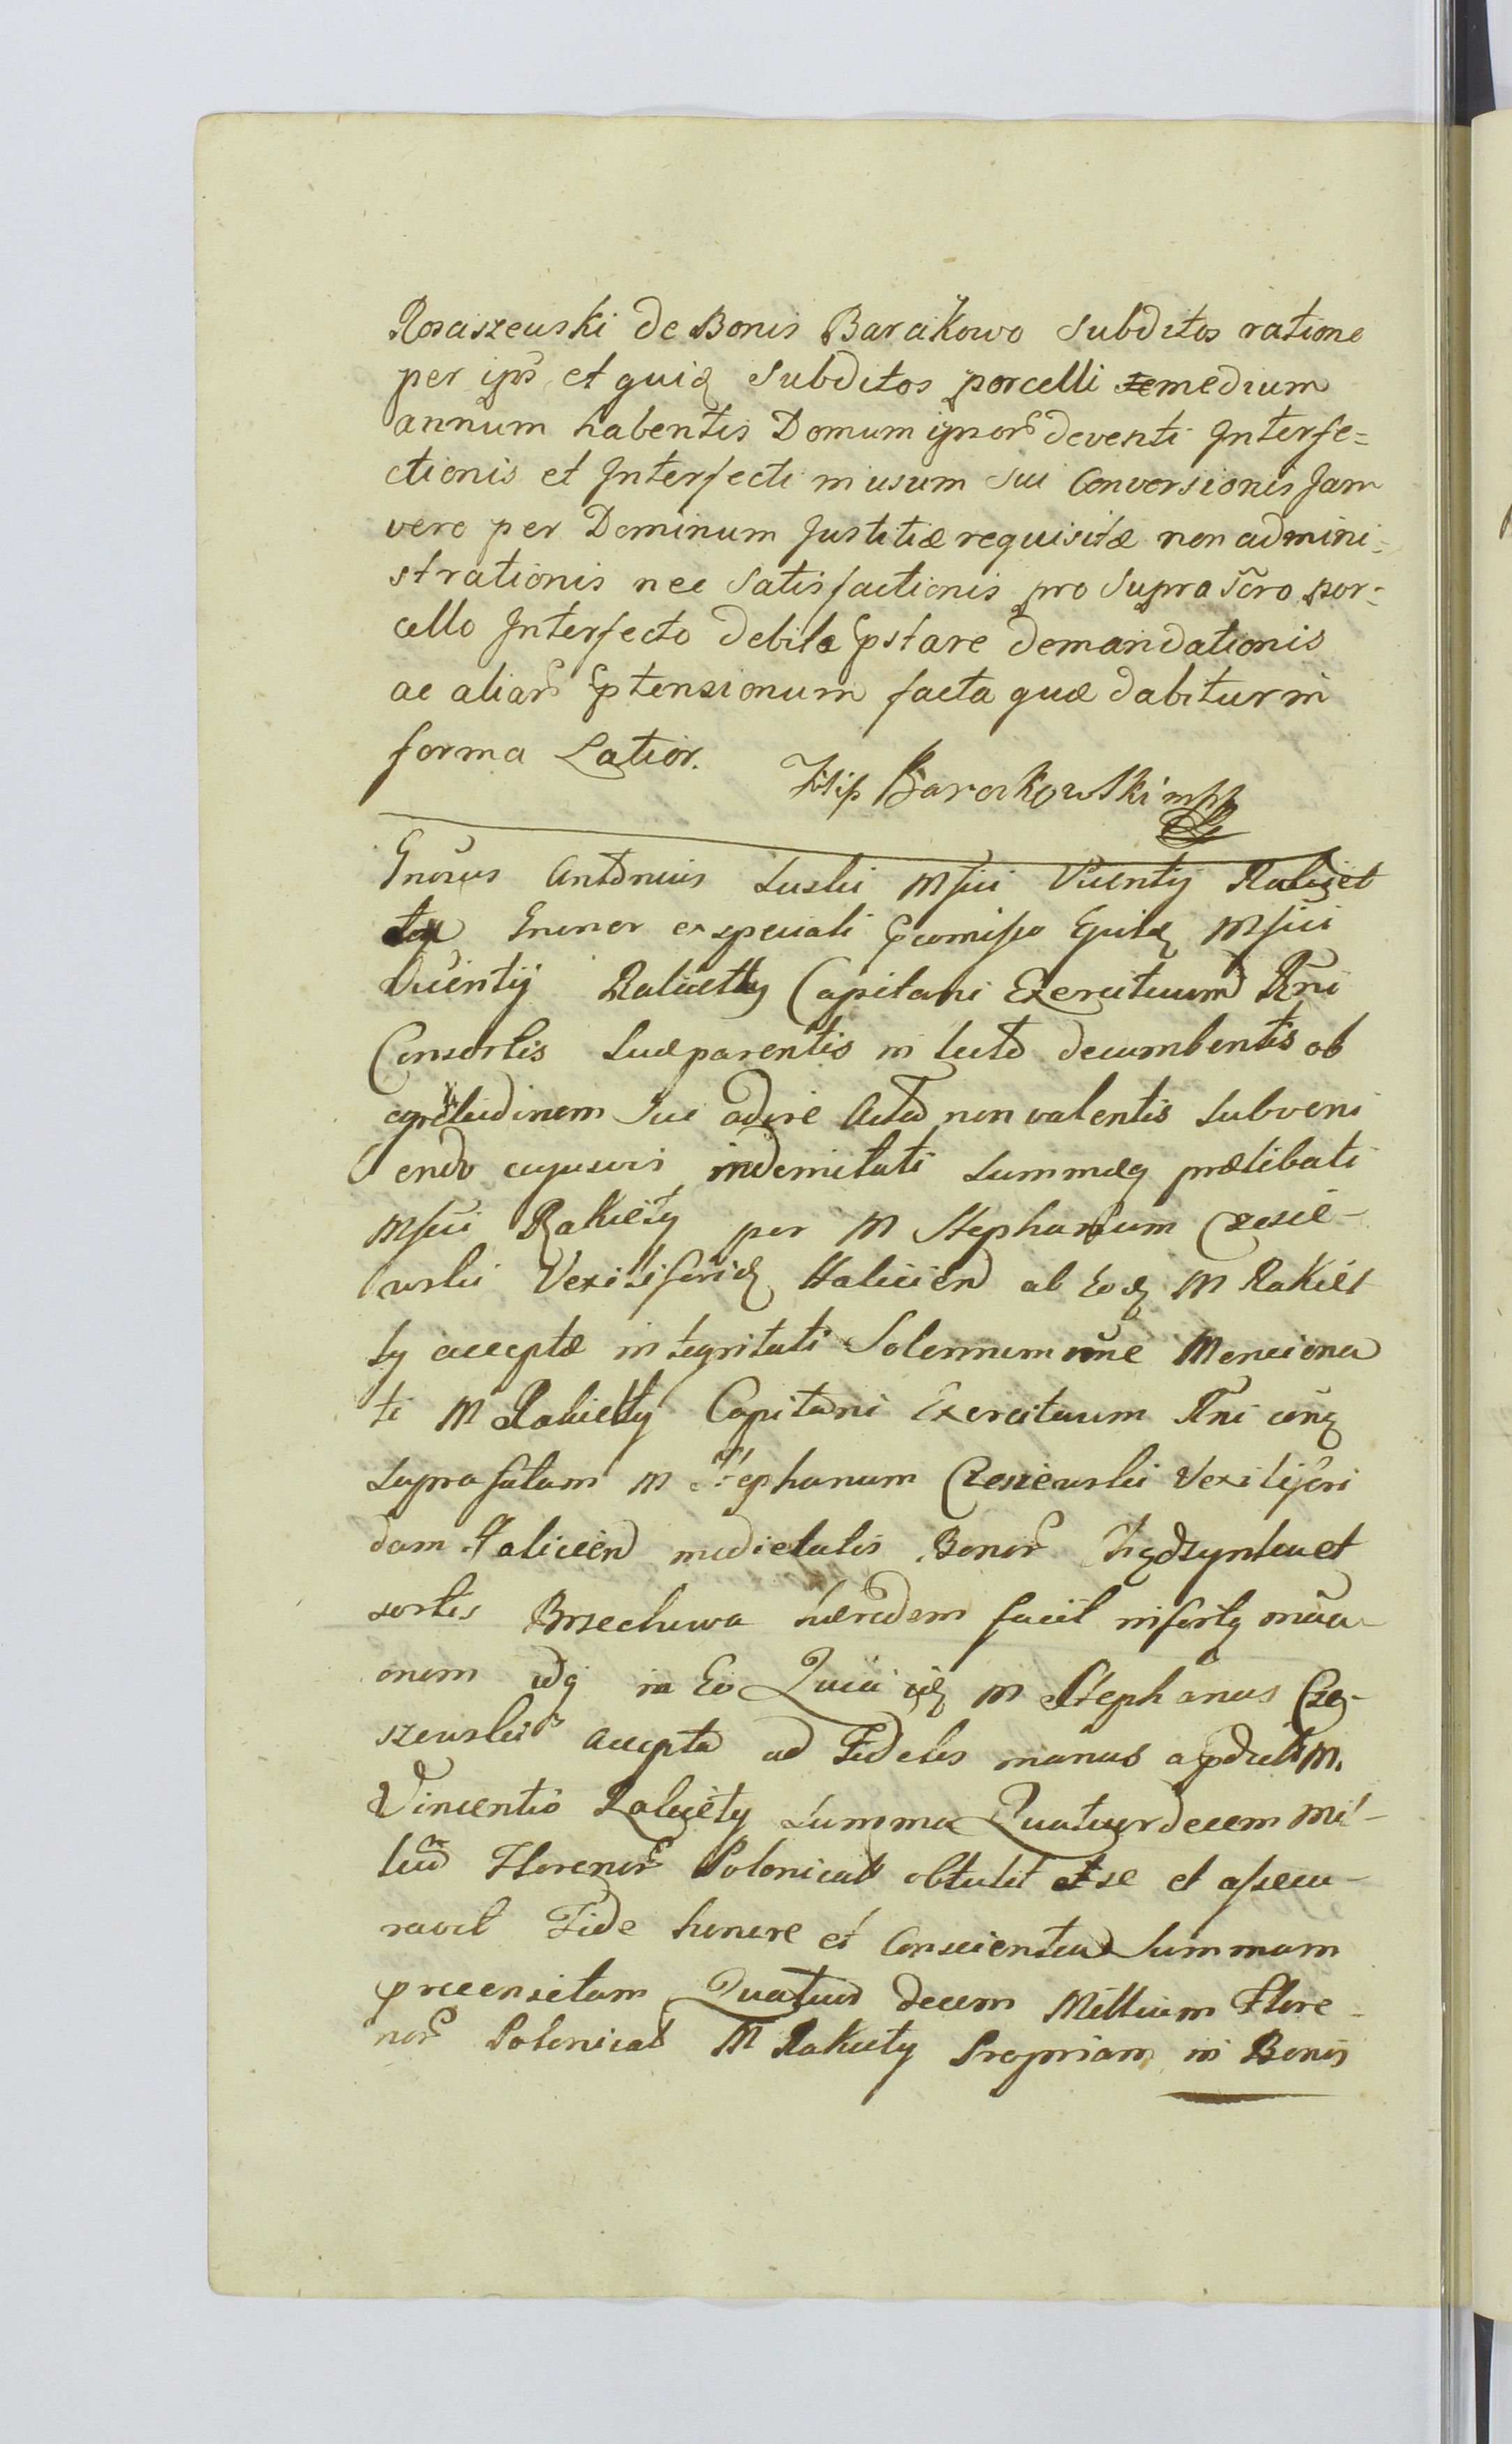 Rosaszewski de Bonis Barakowo Subditos ratione
per ipos et quidem Subditos porcelli semedium
annum habentis Domum ipsor deventi Interfe=
ctionis et Interfecti in usum Sui Conversionis Jam
vero per Dominum Justitiæ requisitæ non admini=
strationis nec Satisfactionis pro Supra scro por=
cello Interfecto debitæ pstare demandationis
ac aliar ptensionum facta quæ dabitur in
forma Latior.
Filip Barakowski mpp
Gnosus Antonius Luski Mfici Vicenty Rakiet
ty Gnener ex speciali pcomisso Eiusdem Mfici
Vicentij Rakietty Capitani Exercituum Rni
Consortis Suæ parentis in lecto decumbentis ob
egritudinem Sui adire Acta non valentis Subveni
endo cujusvis indemnitati Summæq prælibati
Mfici Rakiety per M Stephanum Czesie-
wski Vexilliferidem Haliciens ab Eodem M Rakiet
ty acceptæ integritati Solennem one Menciona
ti M Rakietty Capitani Exercituum Rni conq
Supra fatum M Stephanum Czesiewski Vexiliferi
dam Haliciens medietatis Bonor et
sortis Brzechwa hæredem facit infertq
onem idq in Eo Quia idem M Stephanus Cze-
szewski Accepta ad Fideles manus a pdicto M.
Vincentio Rakiety Summa Quatuordecem Mil-
liu Florenor Polonical obtulit se et assecu-
ravit Fide honore et Conscientia Summam
præcensitam Quatuor decem Millium Flore-
nor Polonical M Rakiety Propriam in Bonis